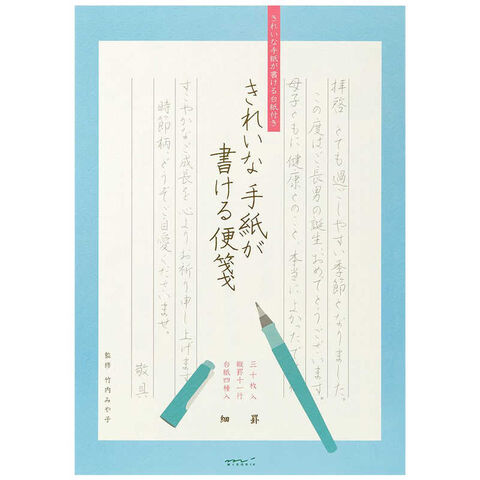 きれいな手紙が書ける台紙付き
拝啓 とても過ごしやすい季節となりました。
この度はご長男の誕生、おめでとうございます。
母子ともに健康とのこと、本当によかったで
きれいな手紙が
書ける便箋
すこやかなご成長を心よりお祈り申し上げます
時節柄、どうぞご自愛くださいませ。
敬具
監修 竹内みや子
三十枚入
縦罫十一行
台紙四種入
細罫
MIDORI